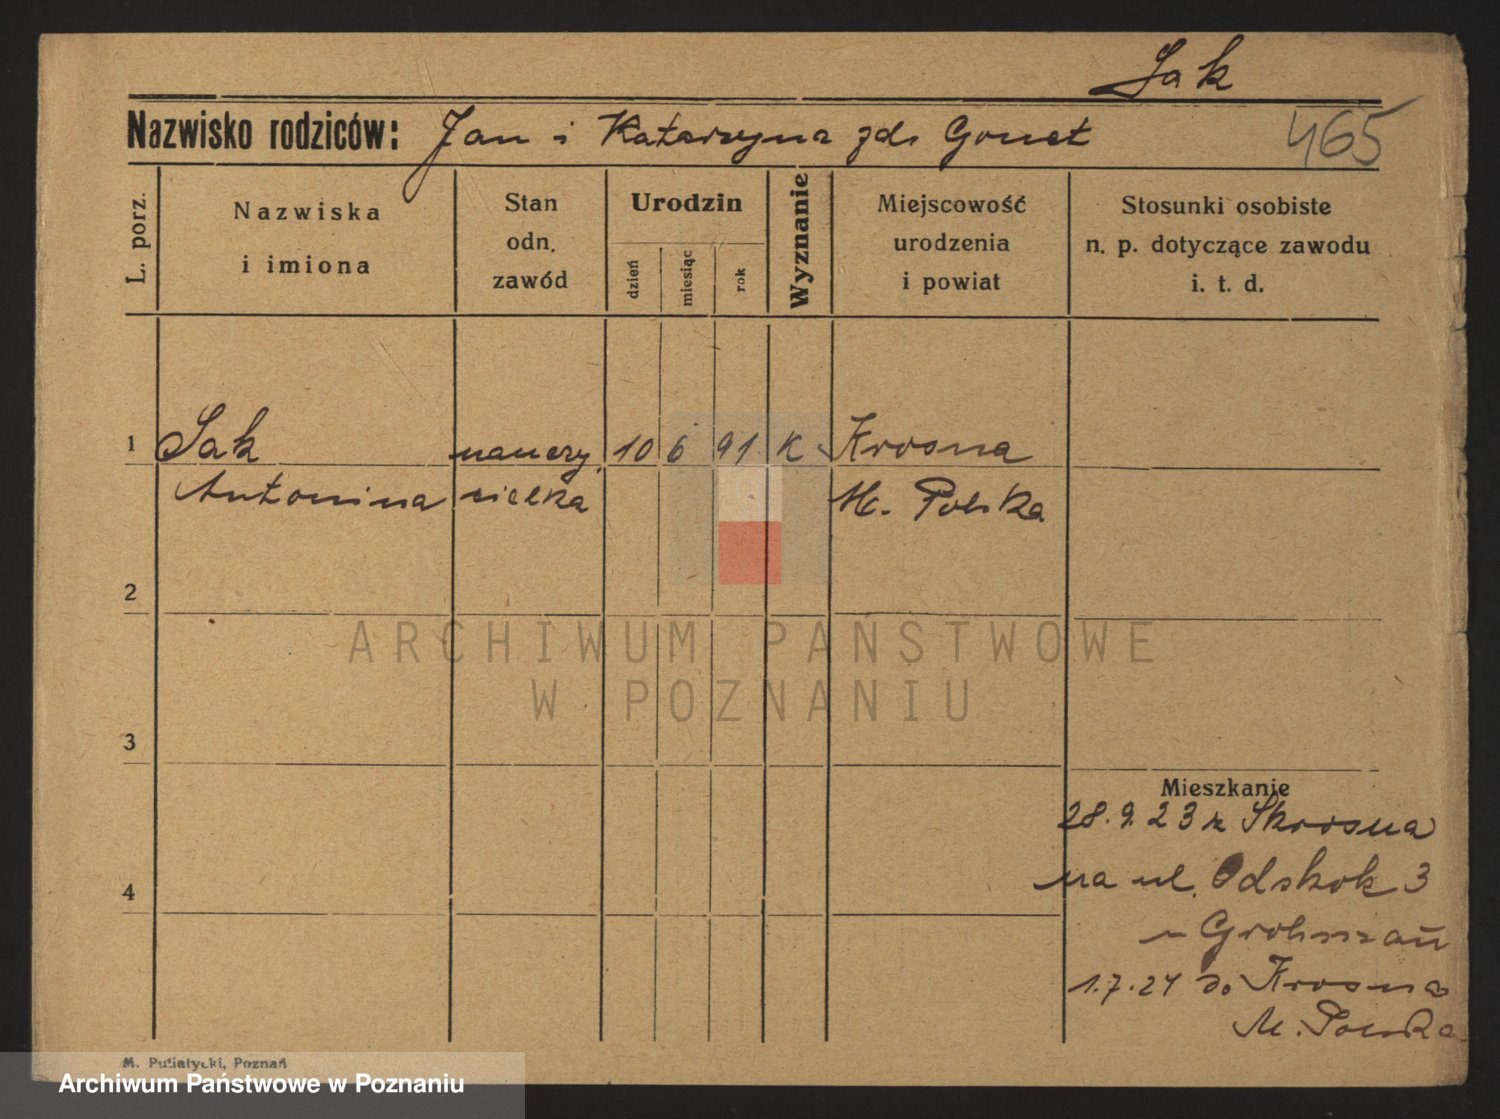 Sak
465
Nazwisko rodziców: Jan i Katarzyna zd. Gonet
L. porz.
Nazwiska
i imiona
Stan
odn.
zawód
Urodzin
dzień
miesiąc
rok
Wyznanie
Miejscowość
urodzenia
i powiat
Stosunki osobiste
n. p. dotyczące zawodu
i. t. d.
1 Sak nauczy 10 6 91 K Krosna
Antonina cielka M. Polska
2
ARCHIWUM PAŃSTWOWE
W POZNANIU
3
Mieszkanie
28.9.23 z Skrosna
na ul. Odskok 3
4
1.7.24 do Krosna
M. Polska
M. Putiatycki, Poznań
Archiwum Państwowe w Poznaniu